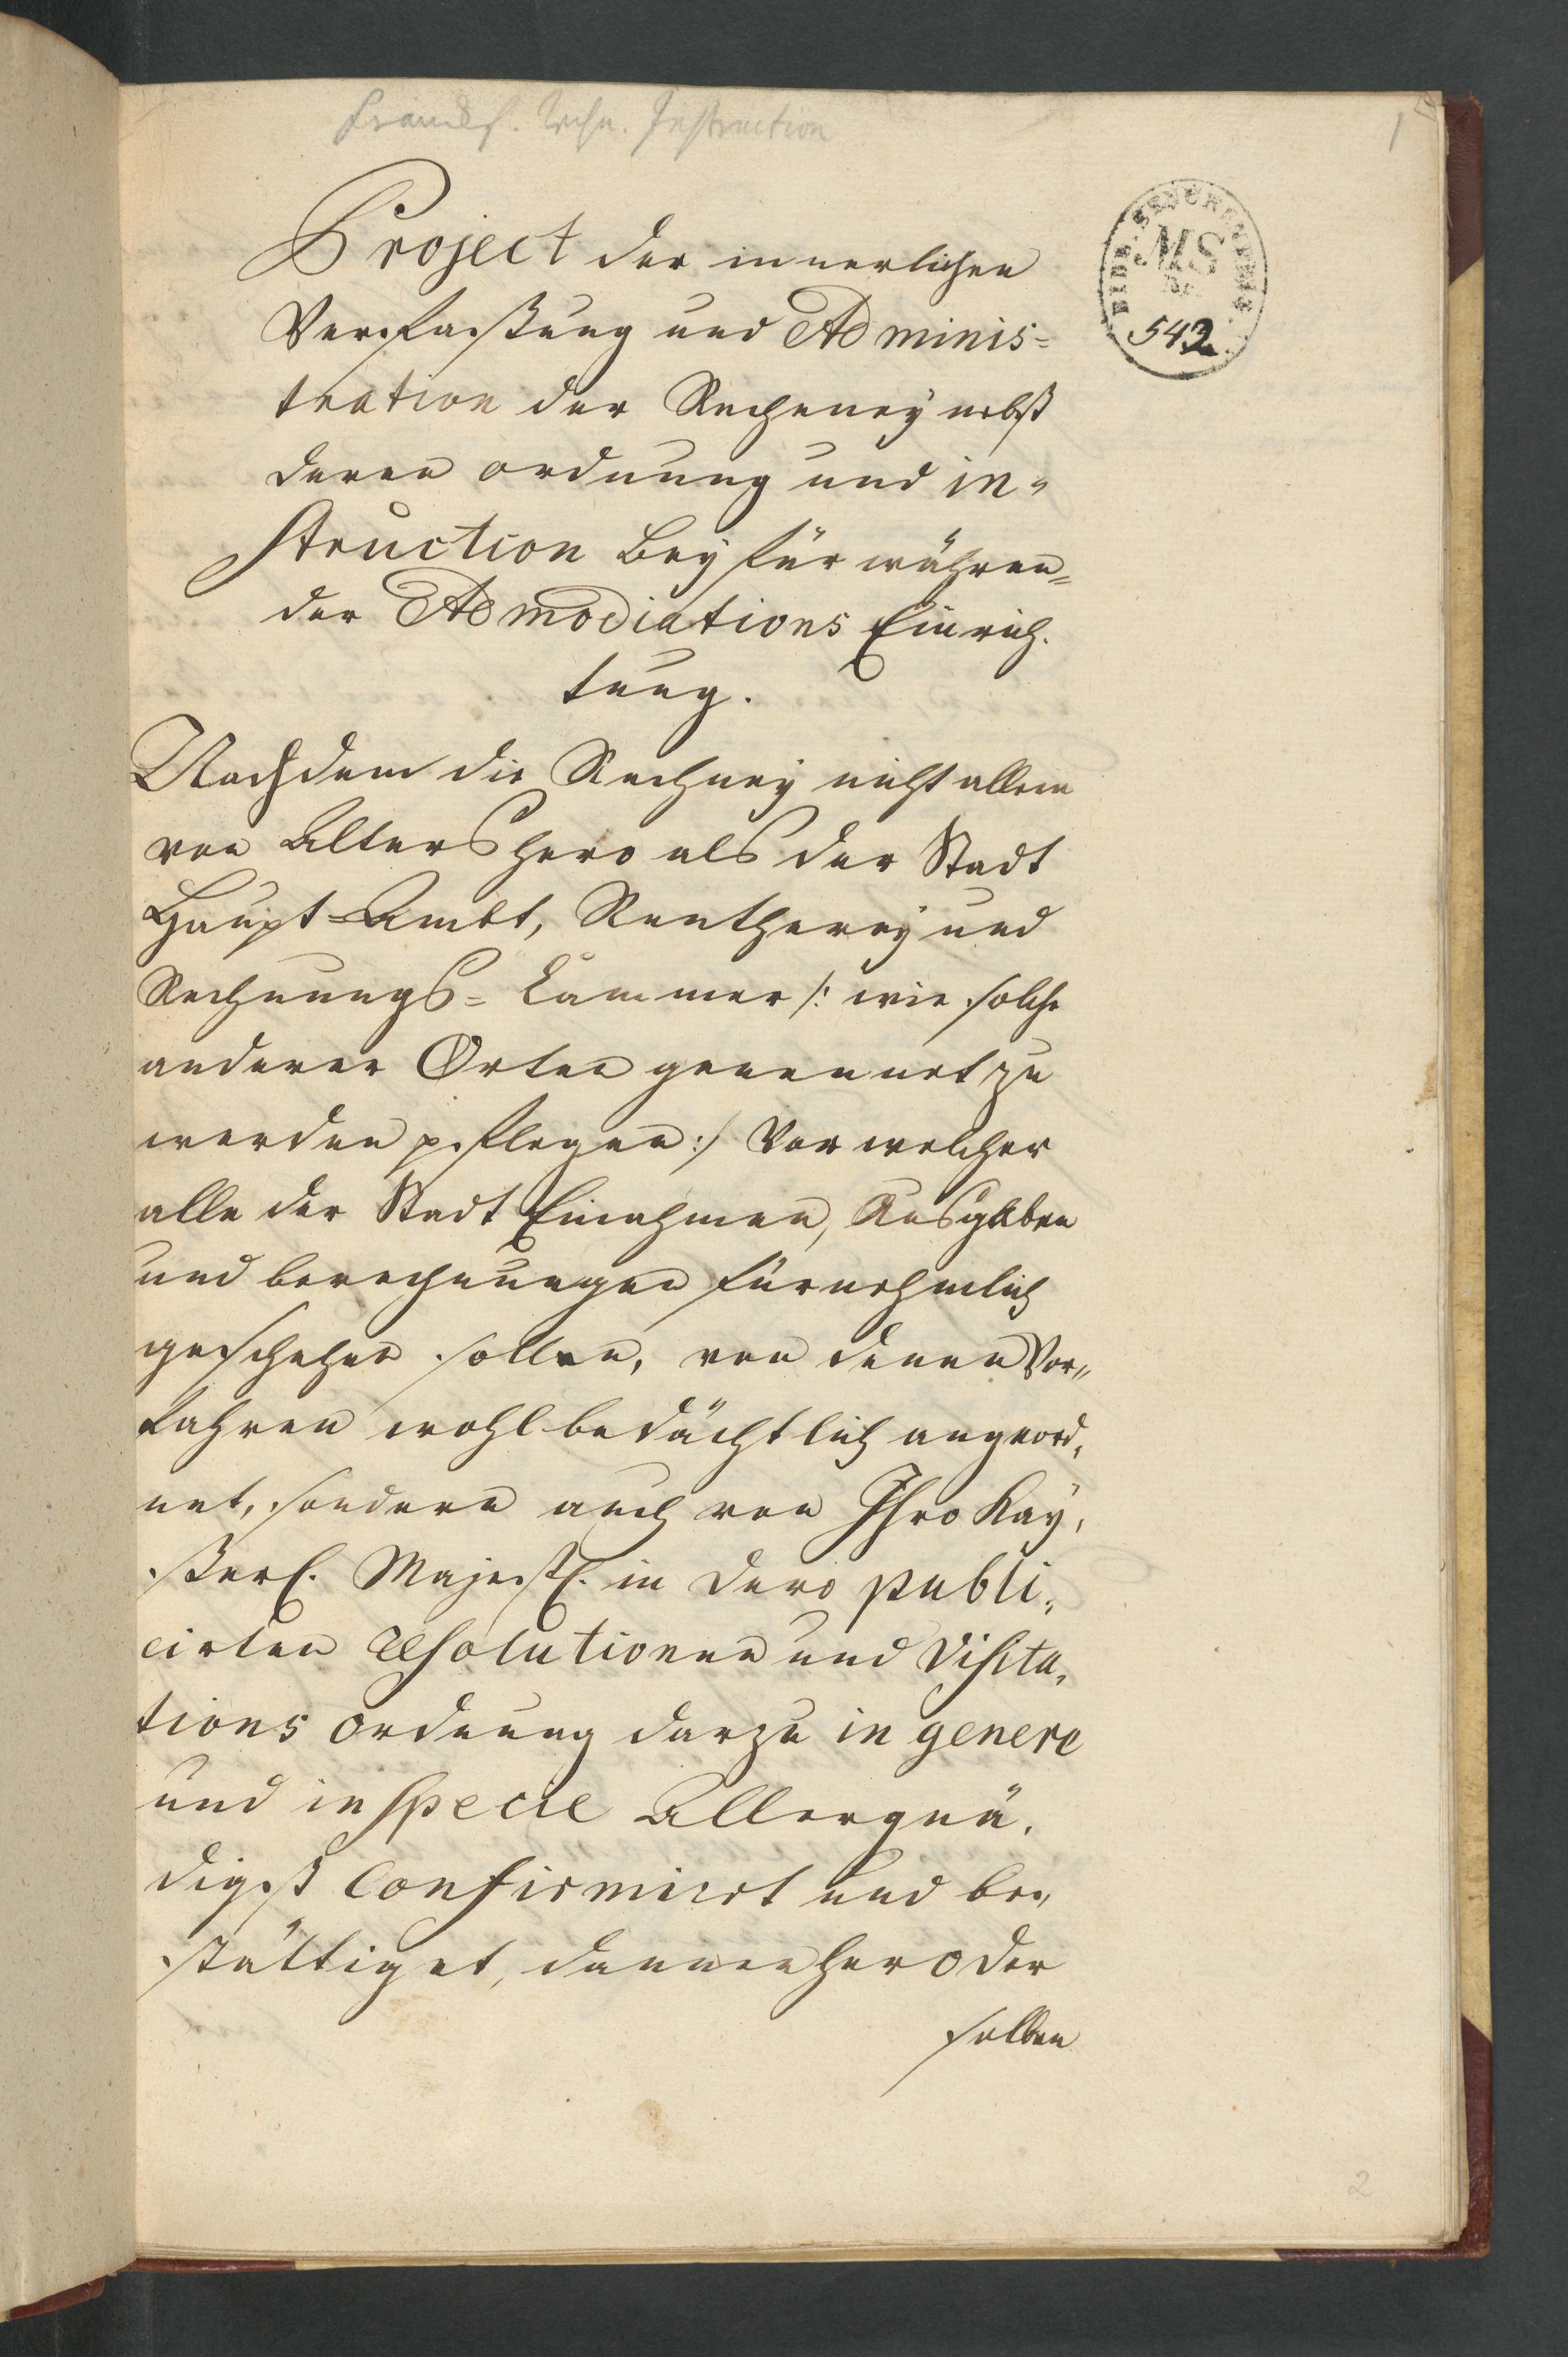 Frankf. Rechn. Instruction
1
Project der innerlichen
Verfaßung und Adminis=
tration der Recheney nebst
deren ordnung und in=
struction bey fürwähren=
der Admodiations Einrich=
tung.
BIBL. SENCKENBERG.
MS
No.
542
Nachdem die Rechney nicht allein
von Alters hero als der Stadt
Haupt=Ambt, Rentherey und
Rechnungs=Cammer /: wie solche
anderer Orten genennet zu
werden pflegen :/ Vor welcher
alle der Stadt Einahmen, Ausgaben
und berechnungen fürnehmlich
geschehen sollen, von denen Vor=
fahren wohlbedächtlich angeord=
net, sondern auch von Ihro Kay=
ßerl. Majestl. in dero publi=
cirten resolutionen und Visita=
tions ordnung darzu in genere
und in specie Allergnä=
digst confirmirt und be=
stättiget, dannenhero der
selben
2